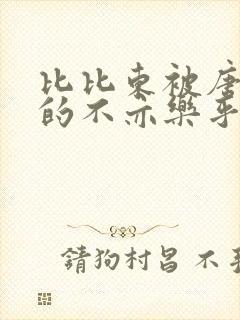 比比东被唐
的不亦樂乎
請狗村呂 不